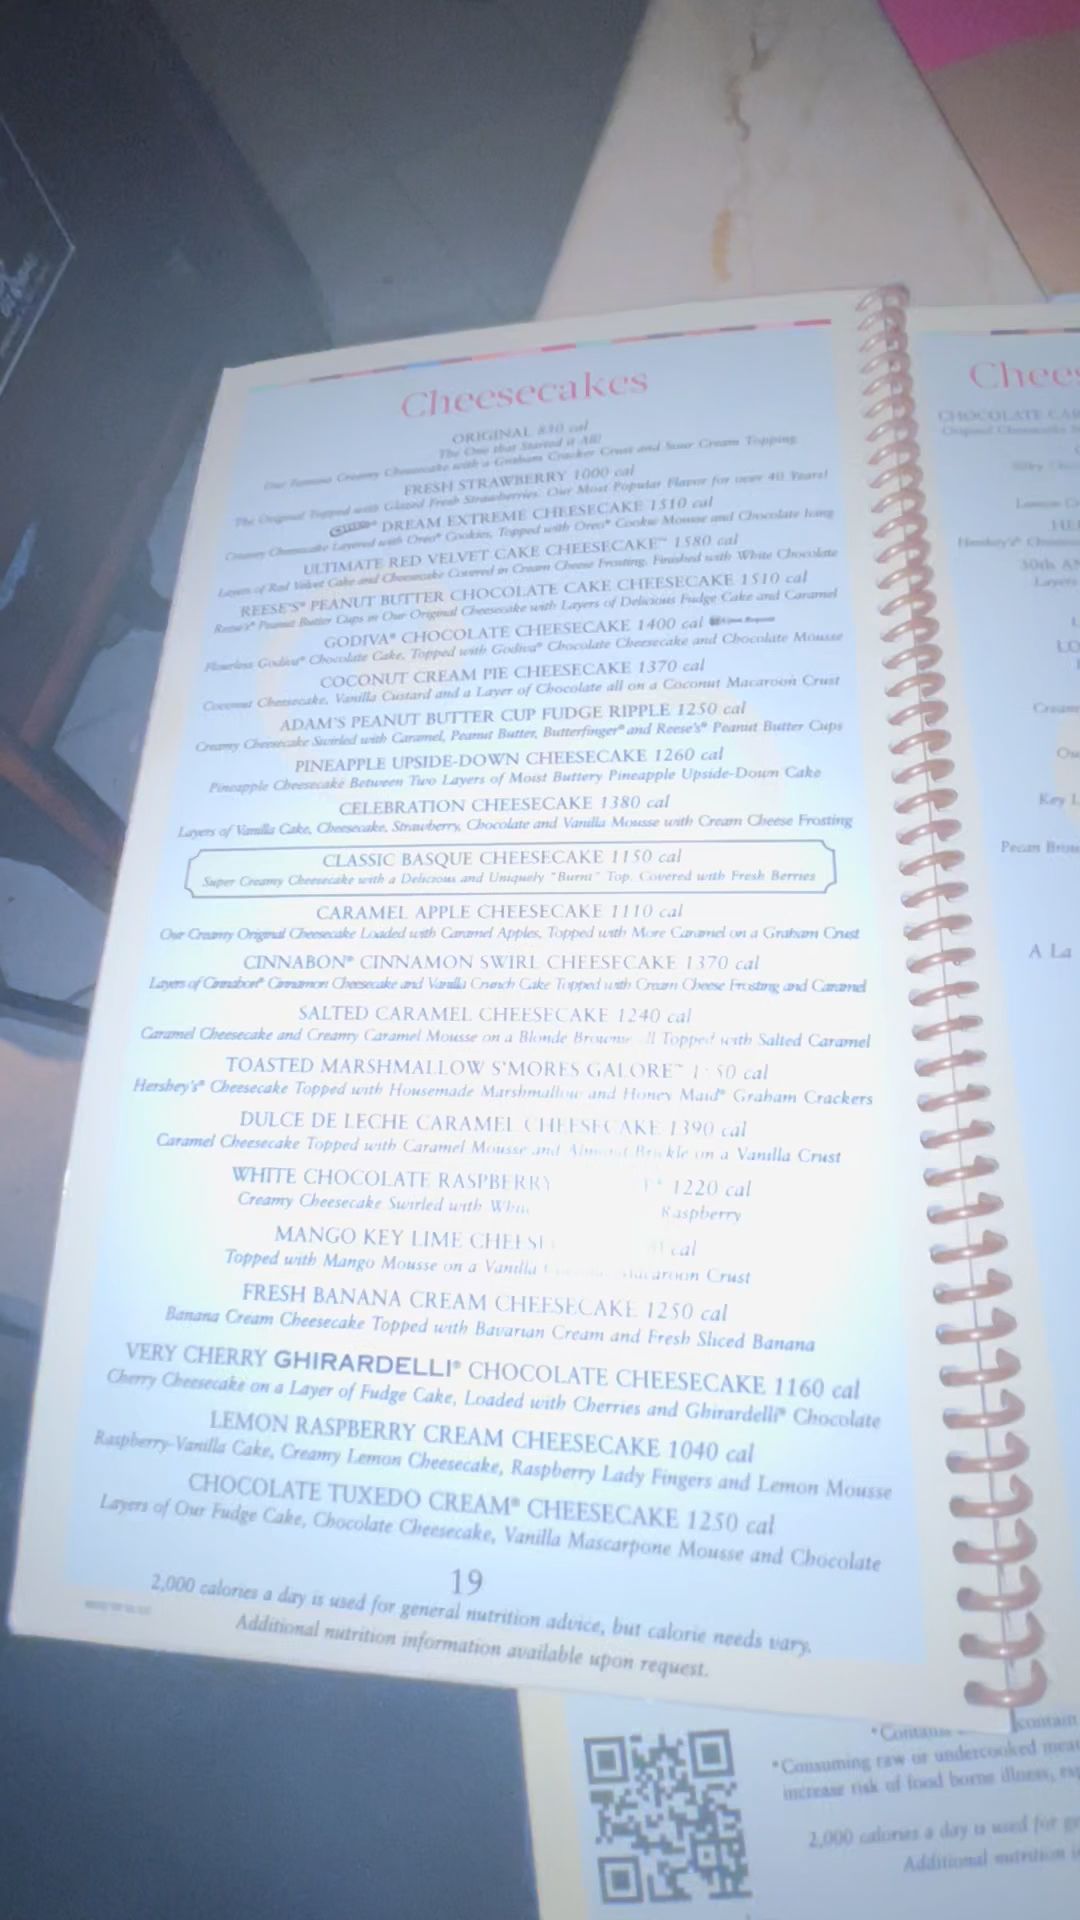 Cheesecakes
ORIGINAL 830 cal
The One that Started it All!
Our Famous Creamy Cheesecake with a Graham Cracker Crust and Sour Cream Topping
FRESH STRAWBERRY 1000 cal
The Original Topped with Glazed Fresh Strawberries. Our Most Popular Flavor for over 40 Years!
DREAM EXTREME CHEESECAKE 1510 cal
Creamy Cheesecake Layered with Oreo® Cookies, Topped with Oreo® Cookie Mousse and Chocolate Icing
ULTIMATE RED VELVET CAKE CHEESECAKE™ 1580 cal
Layers of Red Velvet Cake and Cheesecake Covered in Cream Cheese Frosting. Finished with White Chocolate
REESE'S® PEANUT BUTTER CHOCOLATE CAKE CHEESECAKE 1510 cal
Reese's® Peanut Butter Cups in Our Original Cheesecake with Layers of Delicious Fudge Cake and Caramel
GODIVA® CHOCOLATE CHEESECAKE 1400 cal
Flourless Godiva® Chocolate Cake, Topped with Godiva® Chocolate Cheesecake and Chocolate Mousse
COCONUT CREAM PIE CHEESECAKE 1370 cal
Coconut Cheesecake, Vanilla Custard and a Layer of Chocolate all on a Coconut Macaroon Crust
ADAM'S PEANUT BUTTER CUP FUDGE RIPPLE 1250 cal
Creamy Cheesecake Swirled with Caramel, Peanut Butter, Butterfinger® and Reese's® Peanut Butter Cups
PINEAPPLE UPSIDE-DOWN CHEESECAKE 1260 cal
Pineapple Cheesecake Between Two Layers of Moist Buttery Pineapple Upside-Down Cake
CELEBRATION CHEESECAKE 1380 cal
Layers of Vanilla Cake, Cheesecake, Strawberry, Chocolate and Vanilla Mousse with Cream Cheese Frosting
CLASSIC BASQUE CHEESECAKE 1150 cal
Super Creamy Cheesecake with a Delicious and Uniquely "Burnt" Top. Covered with Fresh Berries
CARAMEL APPLE CHEESECAKE 1110 cal
Our Creamy Original Cheesecake Loaded with Caramel Apples, Topped with More Caramel on a Graham Crust
CINNABON® CINNAMON SWIRL CHEESECAKE 1370 cal
Layers of Cinnabon® Cinnamon Cheesecake and Vanilla Crunch Cake Topped with Cream Cheese Frosting and Caramel
SALTED CARAMEL CHEESECAKE 1240 cal
Caramel Cheesecake and Creamy Caramel Mousse on a Blonde Brownie Topped with Salted Caramel
TOASTED MARSHMALLOW S'MORES GALORE™ cal
Hershey's® Cheesecake Topped with Housemade Marshmallow and Honey Maid® Graham Crackers
DULCE DE LECHE CARAMEL CHEESECAKE 1390 cal
Caramel Cheesecake Topped with Caramel Mousse and Almond Brickle on a Vanilla Crust
WHITE CHOCOLATE RASPBERRY 1220 cal
Creamy Cheesecake Swirled with Raspberry
MANGO KEY LIME cal
Topped with Mango Mousse on a Vanilla Macaroon Crust
FRESH BANANA CREAM CHEESECAKE 1250 cal
Banana Cream Cheesecake Topped with Bavarian Cream and Fresh Sliced Banana
VERY CHERRY GHIRARDELLI® CHOCOLATE CHEESECAKE 1160 cal
Cherry Cheesecake on a Layer of Fudge Cake, Loaded with Cherries and Ghirardelli® Chocolate
LEMON RASPBERRY CREAM CHEESECAKE 1040 cal
Raspberry-Vanilla Cake, Creamy Lemon Cheesecake, Raspberry Lady Fingers and Lemon Mousse
CHOCOLATE TUXEDO CREAM® CHEESECAKE 1250 cal
Layers of Our Fudge Cake, Chocolate Cheesecake, Vanilla Mascarpone Mousse and Chocolate
19
2,000 calories a day is used for general nutrition advice, but calorie needs vary.
Additional nutrition information available upon request.
Chees
CHOCOLATE CAR
Original Cheesecake
Lemon
Hershey's®
30th AN
Layers
LO
Cream
Key L
Pecan Brow
A La
*Contains contain
*Consuming raw or undercooked meat
increase risk of food borne illness, esp
2,000 calories a day is used for ge
Additional nutrition in